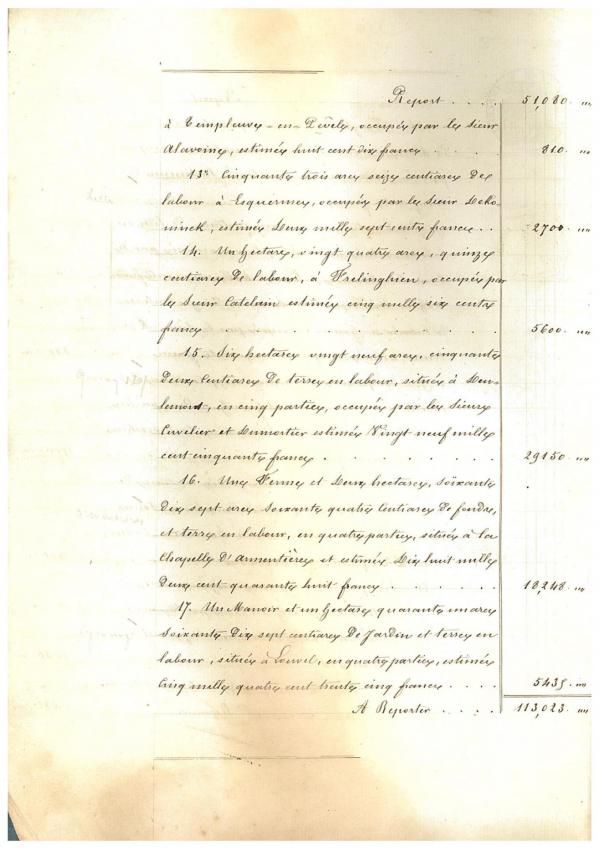 Report . . . . 51,080 "
à Templeuve-en-Pévèle, occupés par le Sieur
Alavoine, estimés huit cent dix francs 810 "
13° Cinquante trois ares seize centiares de
labour à Esquermes, occupés par le Sieur Deko-
ninck, estimés Deux mille sept cents francs . . 2700 "
14. Un hectare, vingt quatre ares, quinze
centiares de labour, à Frelinghien, occupés par
le Sieur Catelain estimés cinq mille six cents
francs . . . . . . . 5600 "
15. Six hectares vingt neuf ares, cinquante
deux Centiares de terre en labour, situés à Deu-
lemont, en cinq parties, occupés par les Sieurs
Cuvelier et Dumortier estimés Vingt neuf mille
cent cinquante francs . . . . . 29150 "
16. Une Ferme et Deux hectares, soixante
dix sept ares soixante quatre Centiares de fonds,
et terre en labour, en quatre parties, situés à la
Chapelle d'Armentières et estimés Dix huit mille
deux cent quarante huit francs . . . . 18,248 "
17. Un Manoir et un hectare quarante un ares
Soixante Dix sept centiares de Jardin et terre en
labour, situés à, en quatre parties, estimés
Cinq mille quatre cent trente cinq francs . . . 5435 "
A Reporter . . . . 113,023 "